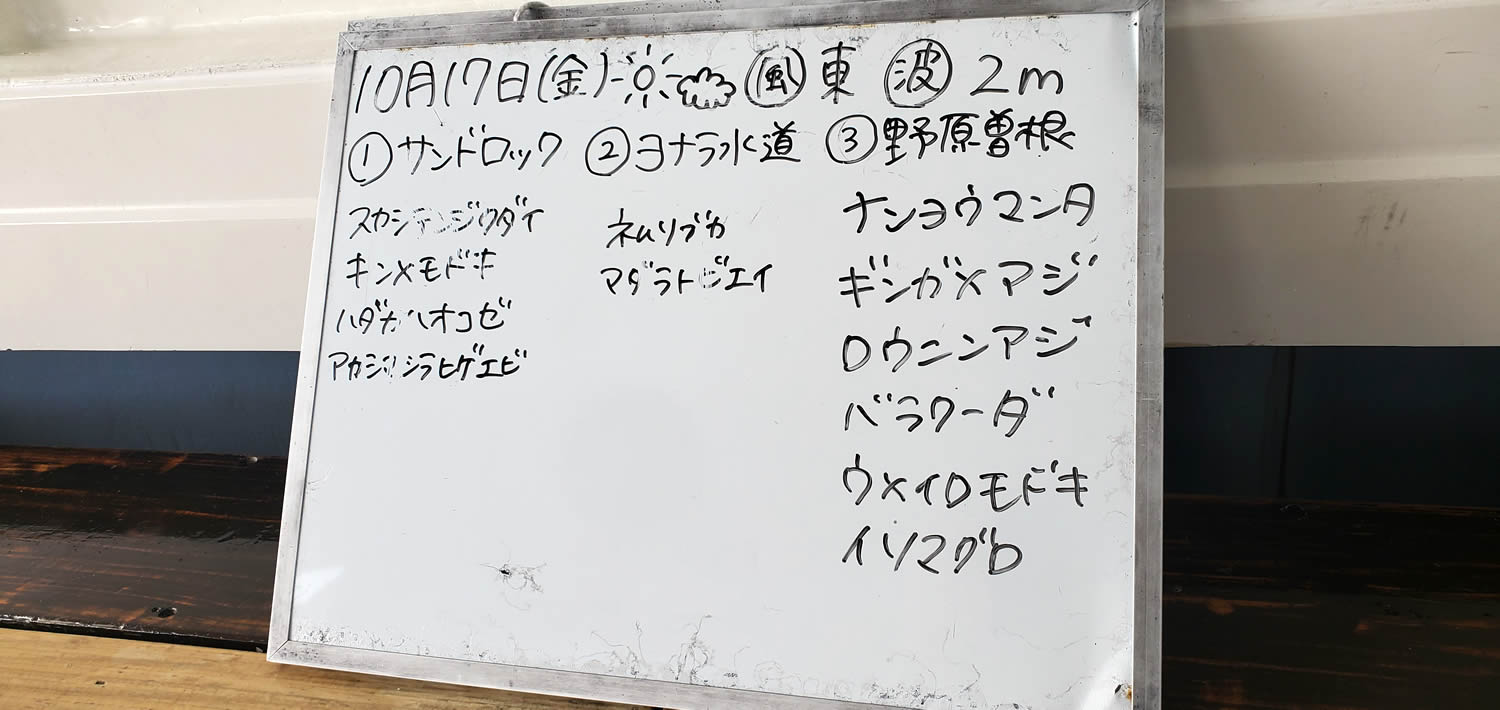 10月17日(金) 風 東 波 2m
①サンドロック ②ヨナラ水道 ③野原曽根
スカシテンジクダイ
キンメモドキ
ハダカハオコゼ
アカシマシラヒゲエビ
ネムリブカ
マダラトビエイ
ナンヨウマンタ
ギンガメアジ
ロウニンアジ
バラクーダ
ウメイロモドキ
イソマグロ